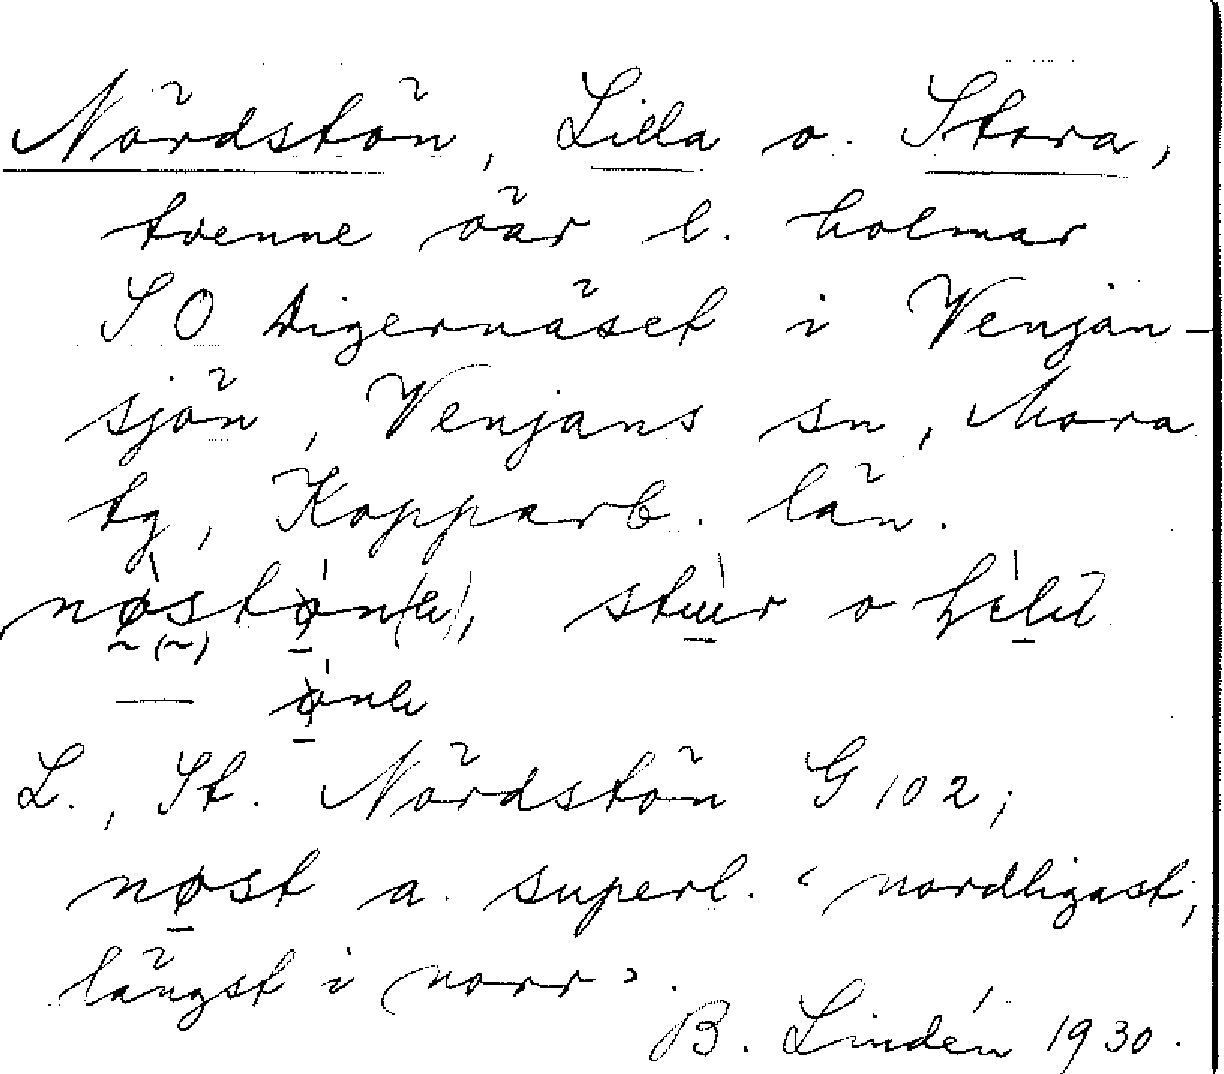 Nördstön, Lilla o. Stora,
tvenne öar l. holmar
SO Digernäset i Venjan-
sjön, Venjans sn, Mora
tg, Kopparb. län.
nøstøn(e), stur o
øne
L., St. Nördstön G 102;
nøst a. superl. ‹nordligast,
längst i norr›.
B. Lindén 1930.